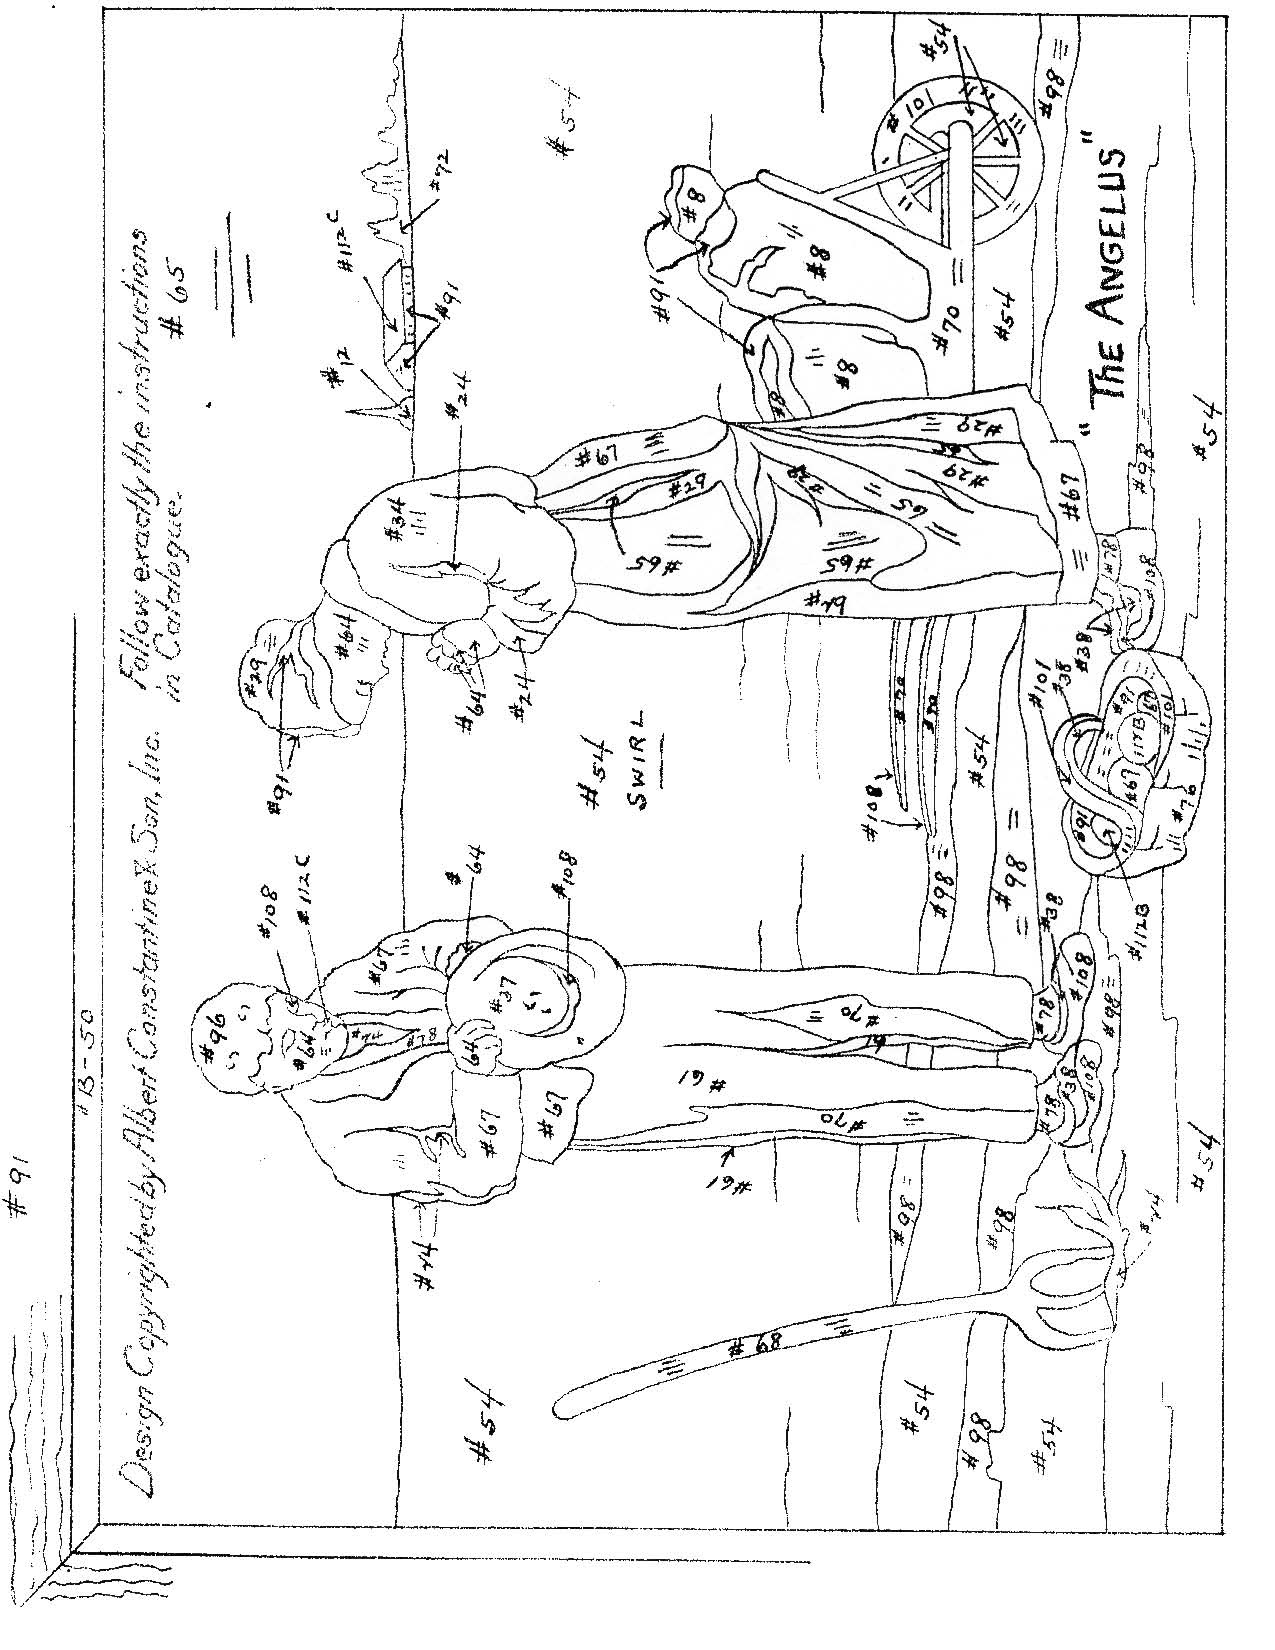 #91
#B-50
Design Copyrighted by Albert Constantine & Son, Inc. Follow exactly the instructions
in Catalogue. #65
#96
#108
#112C
#64
#74
#78
#67
#64
#37
#108
#64
#67
#67
#44
#91
#29
#64
#34
#24
#64
#24
#12
#112C
#91
#72
#54
#54
#54
SWIRL
#67
#29
#65
#65
#29
#65
#29
#29
#67
#91
#8
#8
#8
#8
#101
#54
#70
#54
#98
#61
#70
#61
#70
#61
#68
#98
#98
#54
#98
#54
#108
#70
#70
#98
#54
#98
#78
#38
#108
#78
#38
#108
#98
#44
#101
#38
#38
#91
#112B
#67
#101
#76
#112B
#78
#108
#98
"THE ANGELUS"
#54
#54